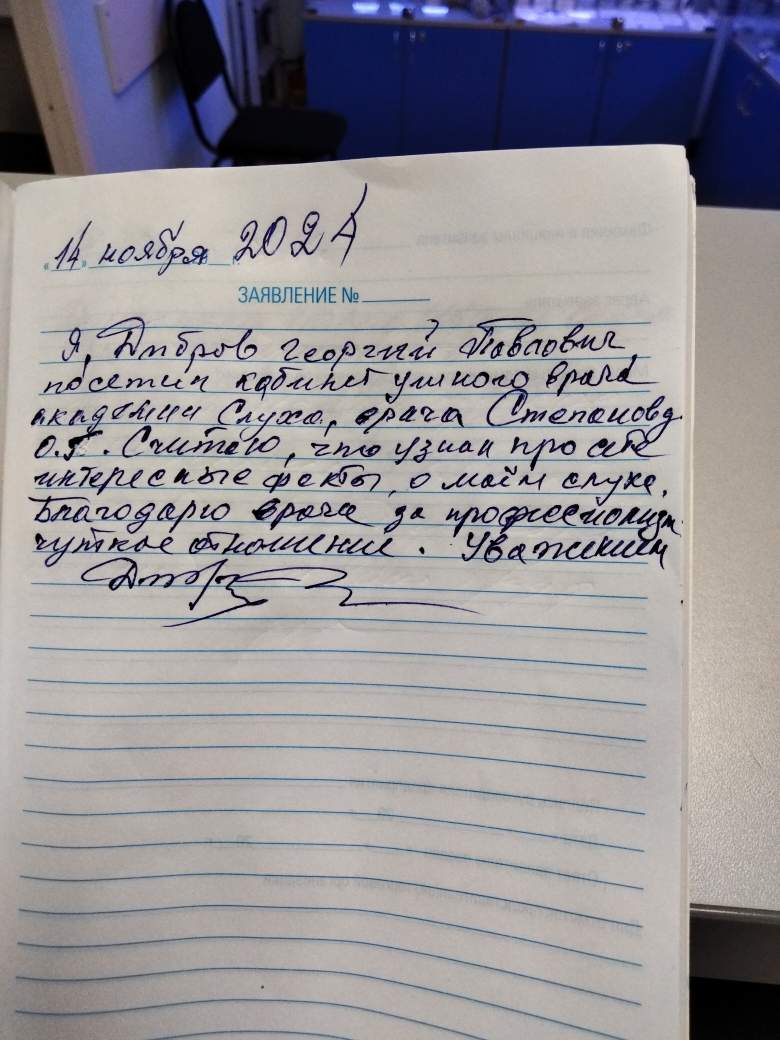 «14» ноября 2024
ЗАЯВЛЕНИЕ №
Я, Дибров Георгий Павлович,
посетил кабинет ушного врача
академии Слуха, врача Степановой
О.Г. Считаю, что узнал про себя
интересные факты, о моём слухе.
Благодарю врача за профессионализм
чуткое отношение. Уважением